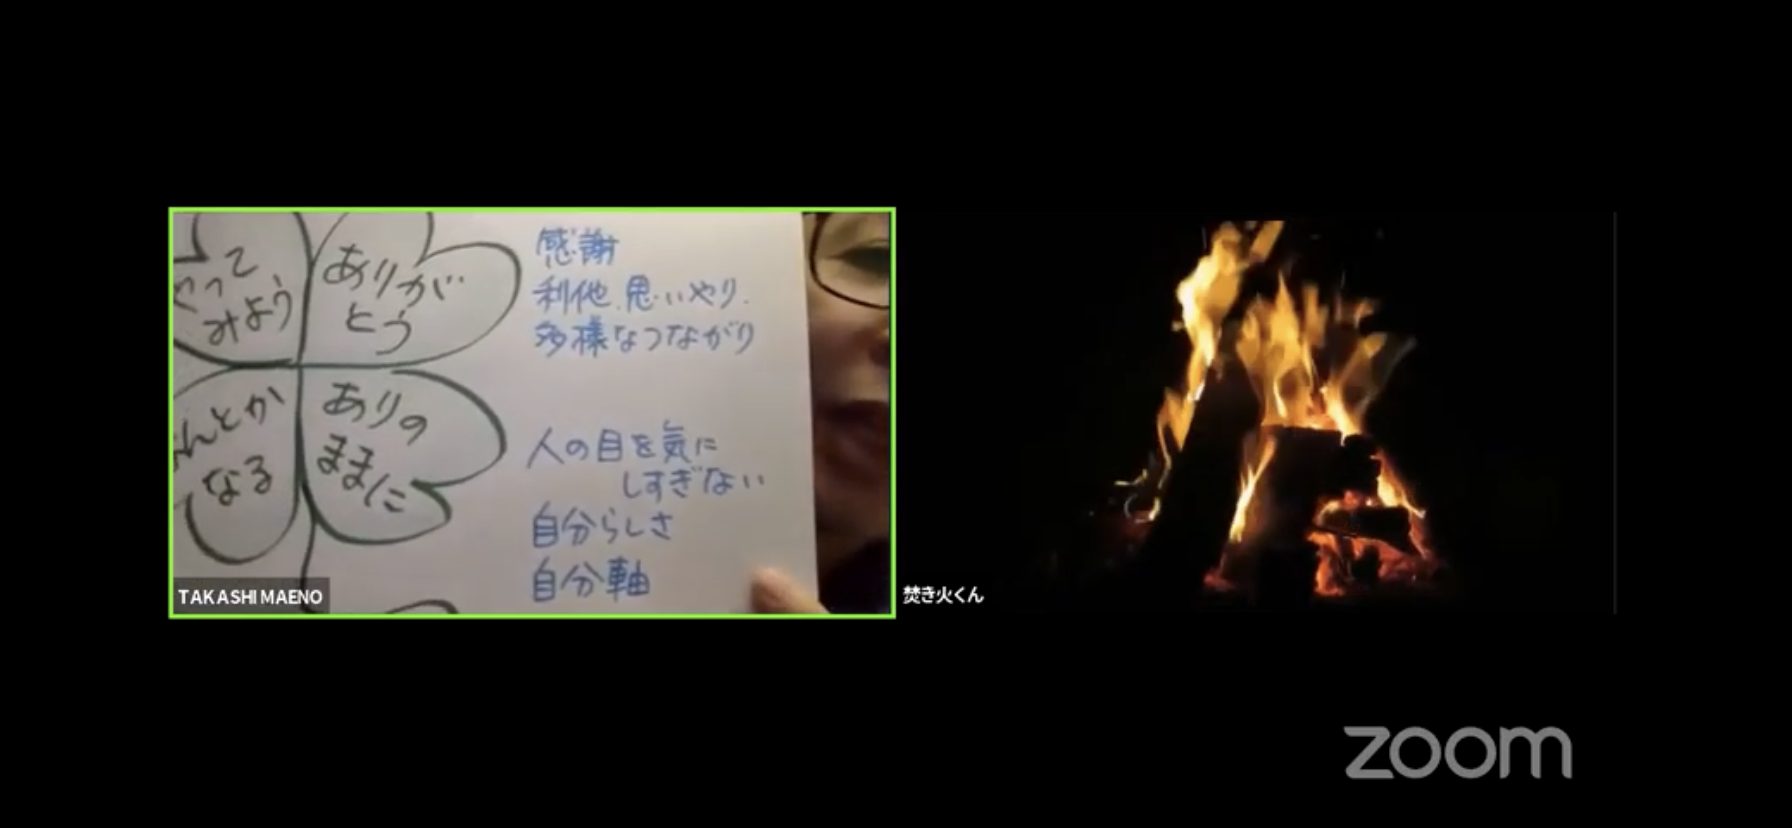 って
みよう
ありが
とう
んとか
なる
ありの
ままに
感謝
利他、思いやり、
多様なつながり
人の目を気に
しすぎない
自分らしさ
自分軸
TAKASHI MAENO
焚き火くん
zoom